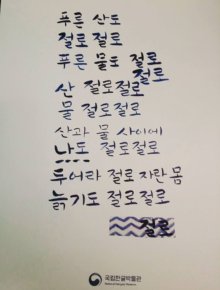 푸른 산도
절로 절로
푸른 물도 절로
절로
산 절로절로
물 절로절로
산과 물 사이에
나도 절로절로
두어라 절로 자란 몸
늙기도 절로절로
절로
국립한글박물관